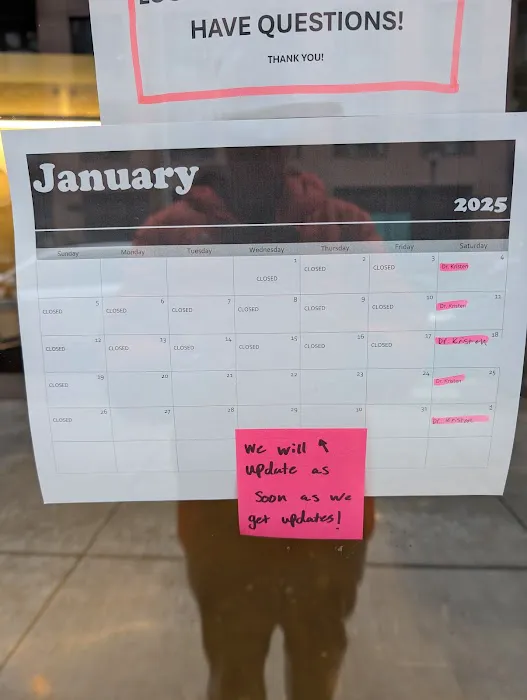 HAVE QUESTIONS!
THANK YOU!
January
2025
Sunday Monday Tuesday Wednesday Thursday Friday Saturday
1 2 3 4
CLOSED CLOSED CLOSED Dr. Kristen
5 6 7 8 9 10 11
CLOSED CLOSED CLOSED CLOSED CLOSED CLOSED Dr. Kristen
12 13 14 15 16 17 18
CLOSED CLOSED CLOSED CLOSED CLOSED CLOSED Dr. Kristen
19 20 21 22 23 24 25
CLOSED Dr. Kristen
26 27 28 29 30 31 2
CLOSED Dr. Kristen
We will ↖
update as
Soon as we
get updates!